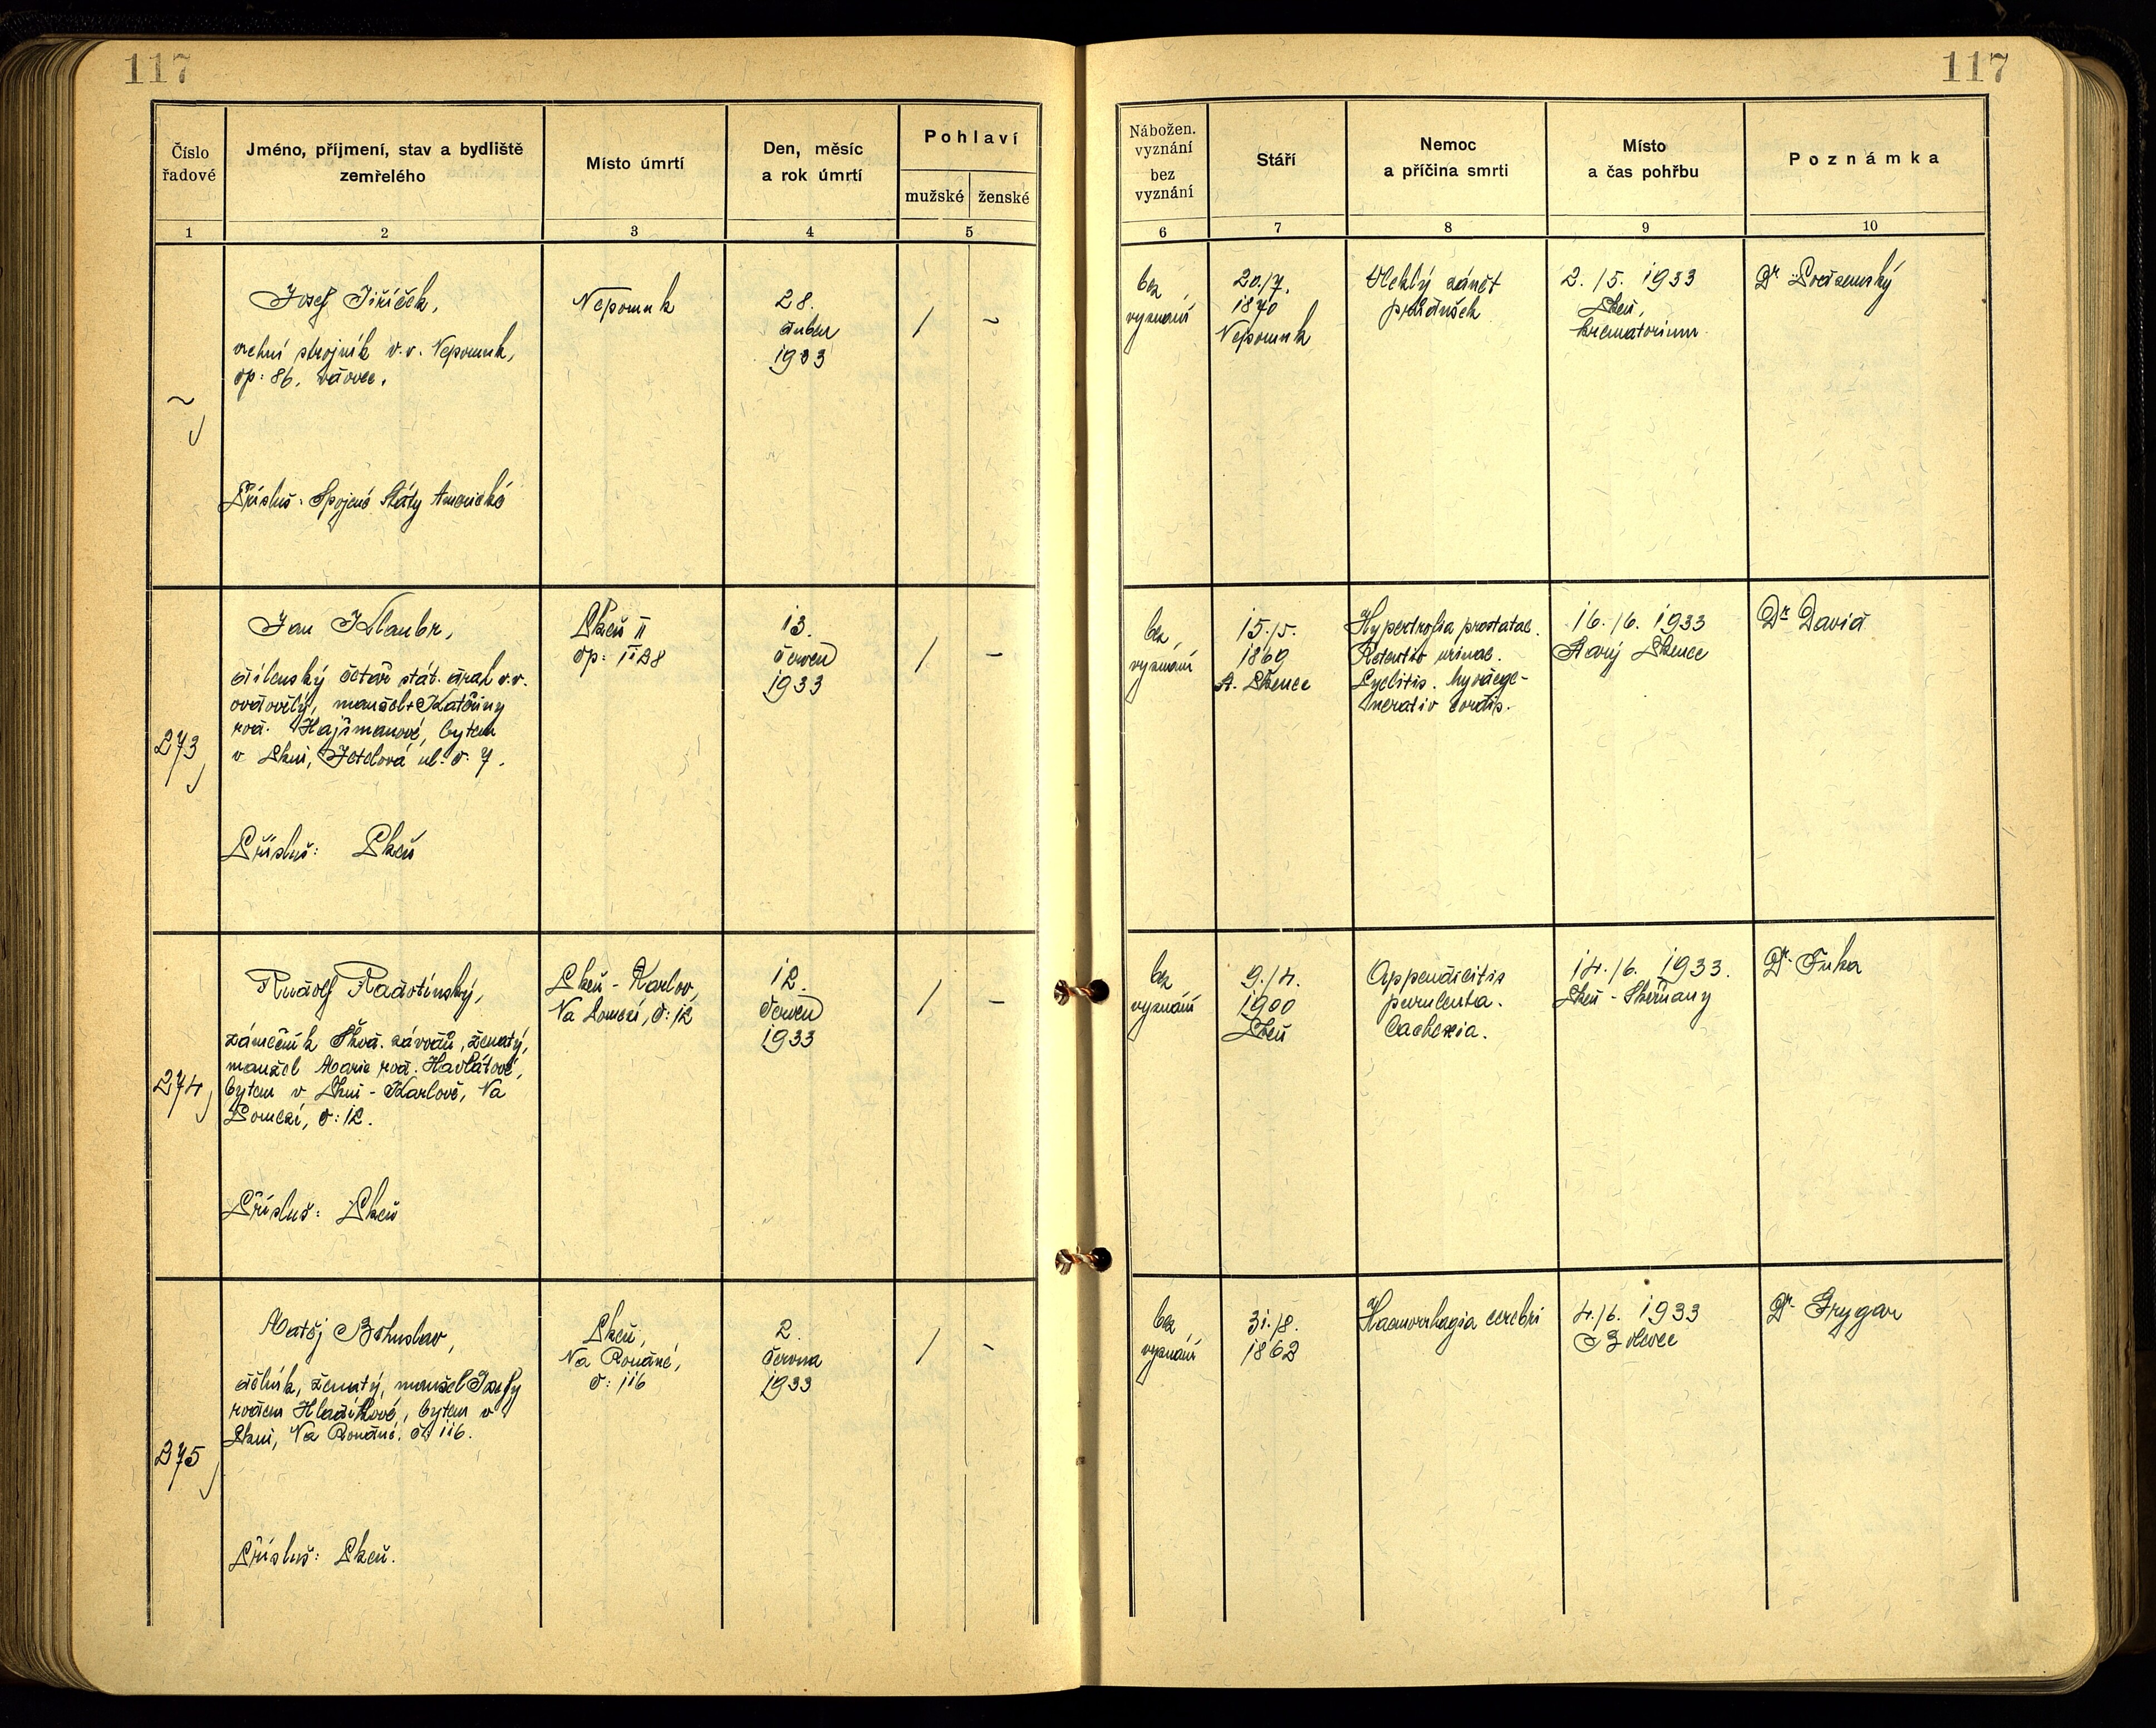 117
117
Číslo
řadové
Jméno, příjmení, stav a bydliště
zemřelého
Místo úmrtí
Den, měsíc
a rok úmrtí
Pohlaví
mužské
ženské
1
2
3
4
5
Nábožen.
vyznání
bez
vyznání
Stáří
Nemoc
a příčina smrti
Místo
a čas pohřbu
Poznámka
6
7
8
9
10
Josef Jiříček,
vrchní strojník v.v. Nepomuk,
čp: 86, vdovec.
Přísluš: Spojené Státy Americké
Nepomuk
28.
dubna
1933
/
~
bez
vyznání
20./7.
1870
Nepomuk
Náhlý zánět
průdušek
2. /5. 1933
Plzeň,
krematorium
Dr
273
Jan Staubr,
dílenský četař stát. drah v.v.
ovdovělý, manžel + Kateřiny
rod. Hajšmanové, bytem
v Plzni, Jetelová ul. č. 7.
Přísluš: Plzeň
Plzeň II
13.
červen
1933
/
–
bez
vyznání
15./5.
1869
St. Plzenec
Hypertrofia prostatae.
Retentio urinae.
Pyelitis. Myodege-
neratio cordis.
16./6. 1933
Starý Plzenec
Dr David
274
Rudolf Radotínský,
zámečník Škod. závodů, ženatý,
manžel Marie rod. Havlátové,
bytem v Plzni - Karlově, Na
Pomezí, č: 12.
Přísluš: Plzeň
Plzeň - Karlov,
Na Pomezí, č: 12
12.
červen
1933
/
–
bez
vyznání
9./4.
1900
Plzeň
Appendicitis
purulenta.
Cachexia.
14./6. 1933.
Plzeň - Skvrňany
Dr Fuka
275
Matěj Bohuslav,
dělník, ženatý, manžel Josefy
rozené Hladíkové, bytem v
Plzni, Na Roudné, čís 116.
Přísluš: Plzeň.
Plzeň,
Na Roudné,
č: 116
2.
června
1933
/
-
bez
vyznání
31./8.
1862
Haemorrhagia cerebri
4./6. 1933
Dr Frygar